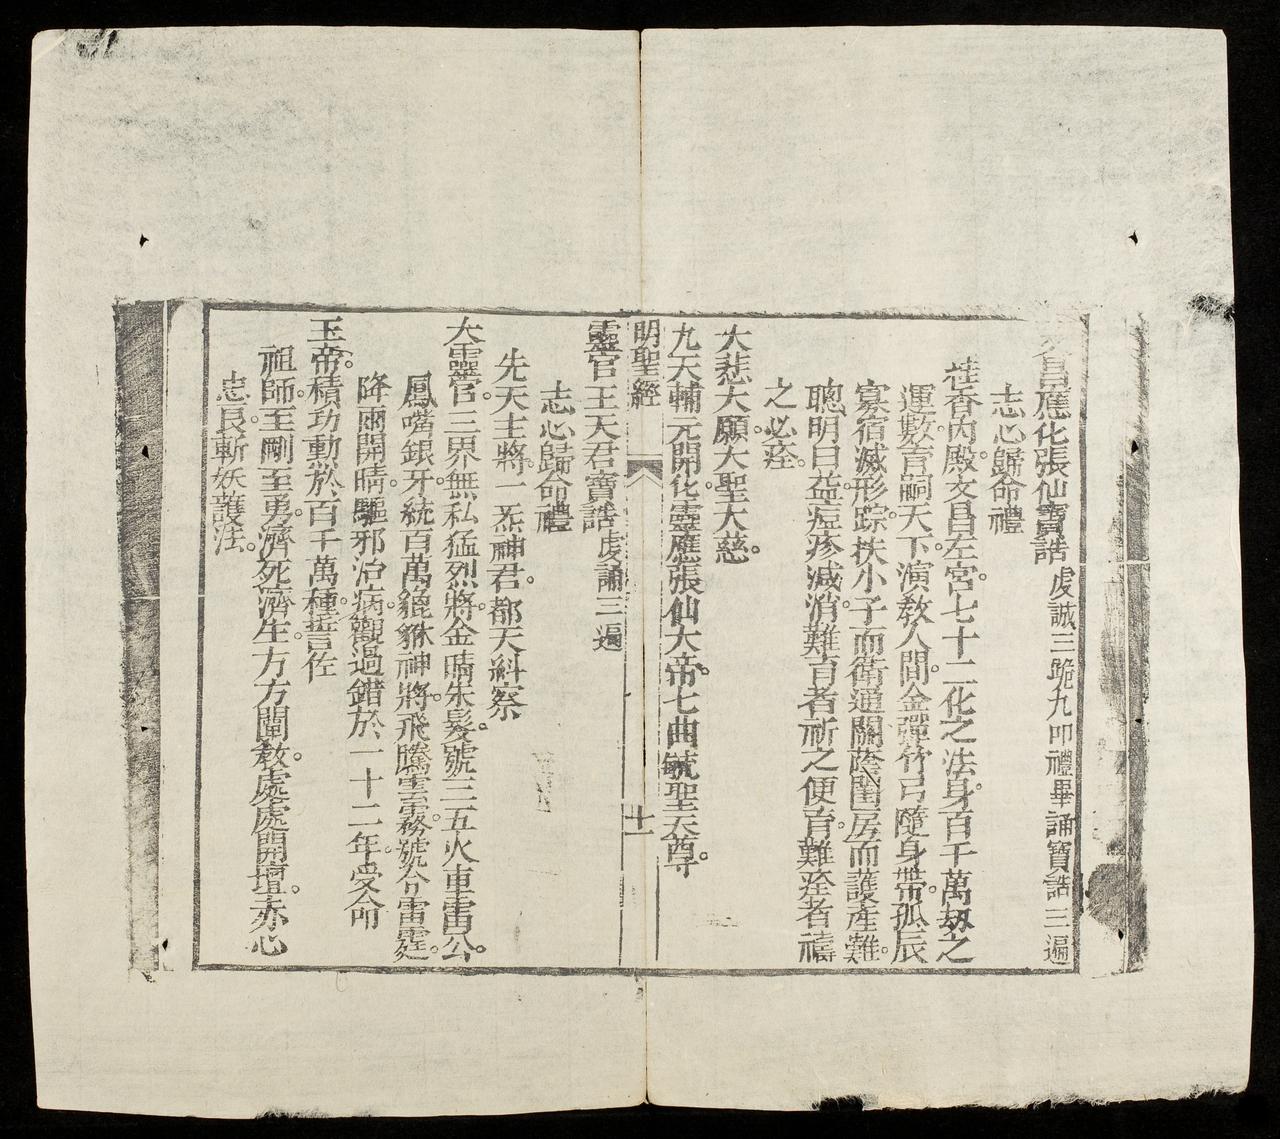 文昌應化張仙寶誥 虔誠三跪九叩禮畢誦寶誥三遍
志心歸命禮
桂香內殿。文昌左宮。七十二化之法身。百千萬刼之
運數。育嗣天下。演教人間。金彈竹弓隨身帶。孤辰
寡宿滅形踪。扶小子而衛通關。蔭閨房而護產難。
聰明日益。痘疹減消。難育者祈之便育。難痊者禱
之必痊。
大悲大願。大聖大慈。
九天輔元開化。靈應張仙大帝。七曲毓聖天尊。
明聖經
十一
靈官王天君寶誥 虔誦三遍
志心歸命禮
先天主將。一炁神君。都天糾察
大靈官。三界無私猛烈將。金睛朱髮。號三五火車雷公。
鳳嘴銀牙。統百萬貔貅神將。飛騰雲霧。號令雷霆。
降雨開晴。驅邪治病。觀過錯於一十二年。受命
玉帝。積功勳於百千萬種。誓佐
祖師。至剛至勇。濟死濟生。方方闡教。處處開壇。赤心
忠良。斬妖護法。